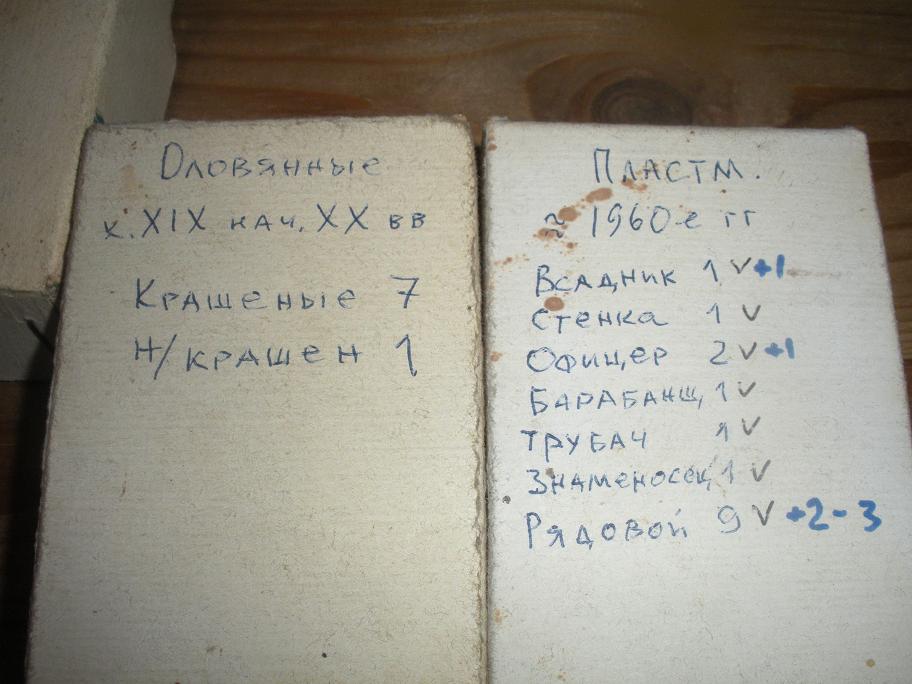 Оловянные
к. XIX нач. XX вв
Крашеные 7
Н/крашен 1
Пластм.
≈ 1960-е гг
Всадник 1 V +1
Стенка 1 V
Офицер 2 V +1
Барабанщ, 1 V
Трубач 1 V
Знаменосец 1 V
Рядовой 9 V +2-3